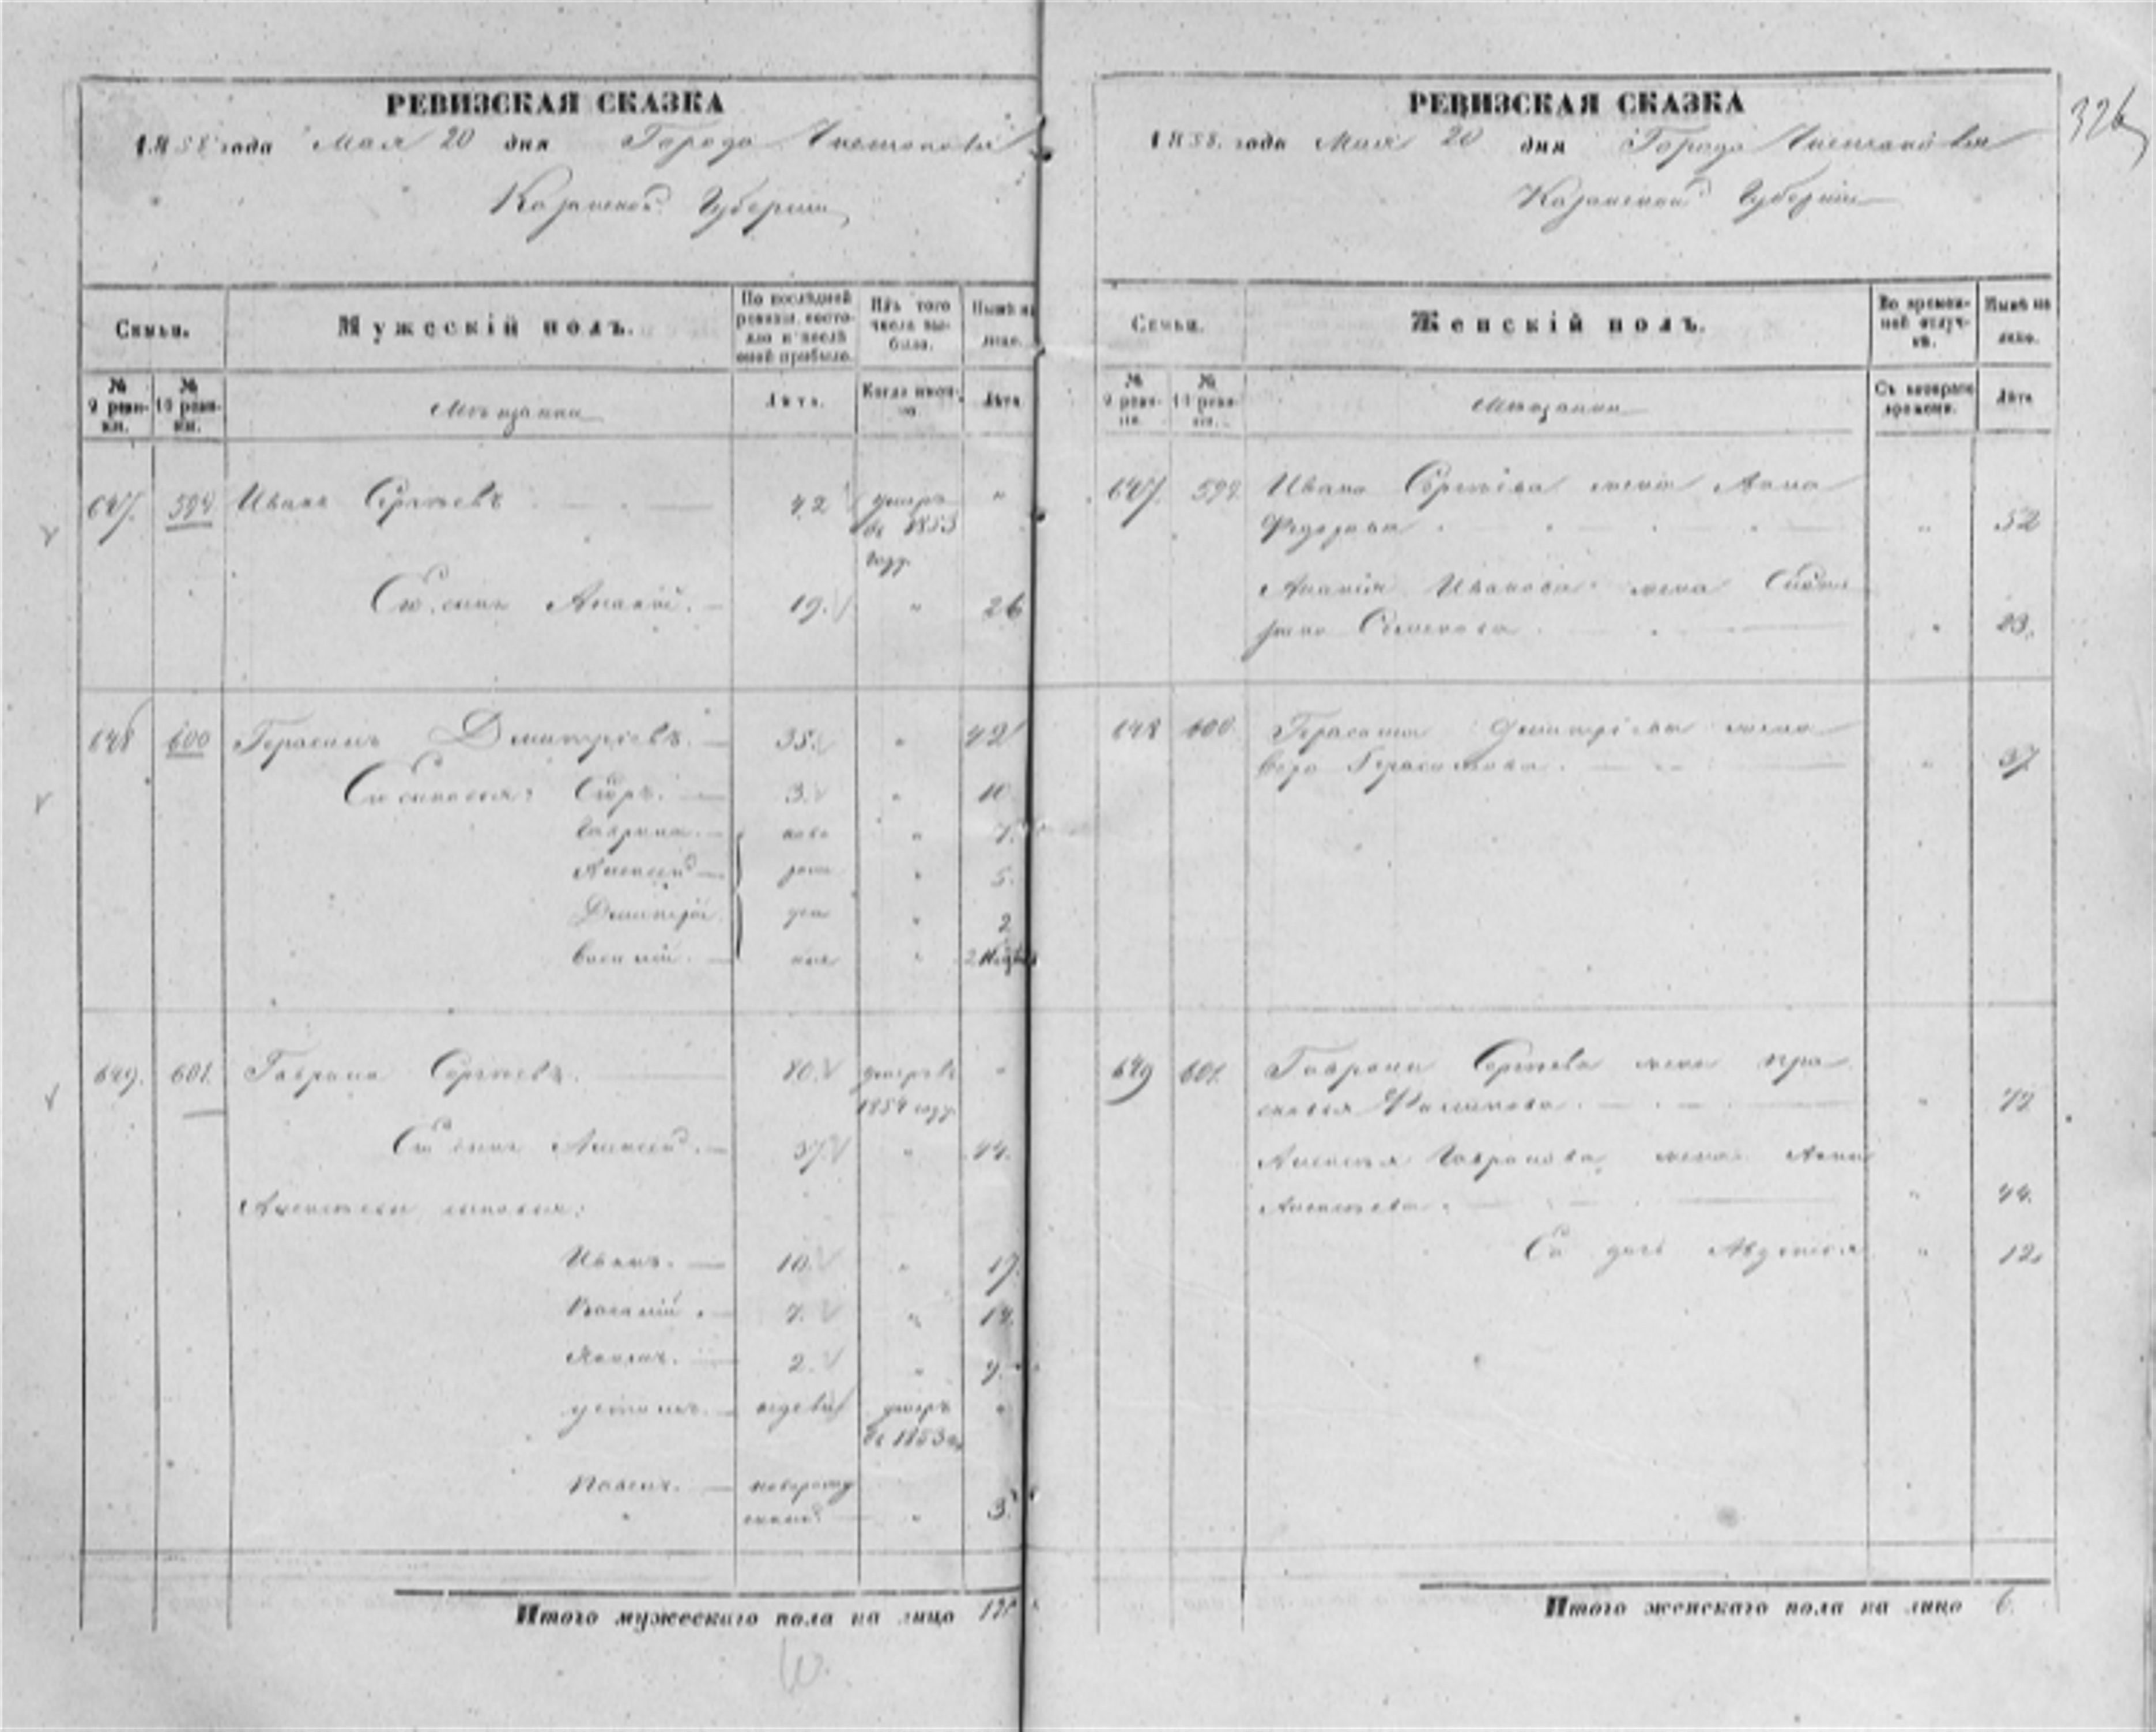 РЕВИЗСКАЯ СКАЗКА
1858 года Мая 20 дня Города Чистополя
Казанской Губернии
Семьи.
Мужескій полъ.
По послѣдней ревизіи состояло и послѣ оной прибыло.
Изъ того числа выбыло.
Нынѣ на лицо.
№ 9 ревизіи.
№ 10 ревизіи.
Мѣщане
Лѣта.
Когда именно.
Лѣта
647. 599 Иванъ Сергѣевъ 42 умеръ "
въ 1853
году.
Его сынъ Ананій. 19. " 26
648 600 Герасимъ Дмитріевъ. 35. " 42
Его сыновья: 3. " 10
Гаврила. ново " 7.
Алексѣй рож " 5.
Дмитрій ден " 2
Василій. ные "
649. 601. Гаврила Сергѣевъ. 80. умеръ въ "
1854 году
Его сынъ Алексѣй. 37. " 44.
Алексѣевы сыновья:
Иванъ. 10. " 17.
Василій. 7. " 14.
2. " 9.
умеръ "
въ 1853 г.
Павелъ. новорожд
енный " 3.
Итого мужескаго пола на лицо
РЕВИЗСКАЯ СКАЗКА
326
1858. года Мая 20 дня Города Чистополя
Казанской Губерніи
Семьи.
Женскій полъ.
Во временной отлучкѣ.
Нынѣ на лицо.
№ 9 ревизіи.
№ 10 ревизіи.
Мѣщанки
Съ котораго времени.
Лѣта
647. 599. Ивана Сергѣева жена Анна
Федорова " 52
Ананія Иванова жена
Семенова. " 23.
648 600 Герасима Дмитріева жена
Вера Герасимова. " 37
649 601. Гаврилы Сергѣева жена Пра
сковья " 72
Алексѣя Гаврилова жена Анна
Алексѣева. " 44.
Ея дочь Авдотья " 12.
Итого женскаго пола на лицо 6.